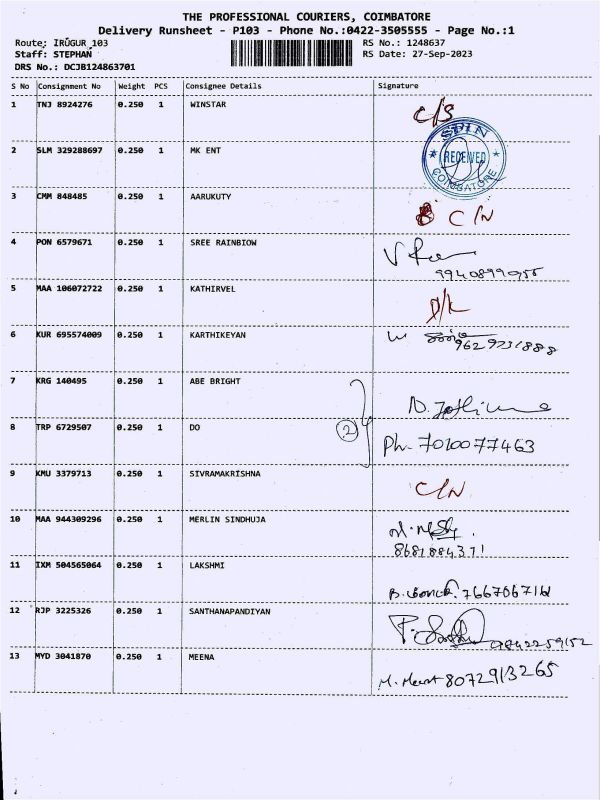 THE PROFESSIONAL COURIERS, COIMBATORE
Delivery Runsheet - P103 - Phone No.:0422-3505555 - Page No.:1
Route: IRUGUR 103 RS No.: 1248637
Staff: STEPHAN RS Date: 27-Sep-2023
DRS No.: DCJB124863701
S No Consignment No Weight PCS Consignee Details Signature
1 TNJ 8924276 0.250 1 WINSTAR C/S
2 SLM 329288697 0.250 1 MK ENT SPIN RECEIVED COIMBATORE
3 CMM 848485 0.250 1 AARUKUTY C/N
4 PON 6579671 0.250 1 SREE RAINBIOW
9940899055
5 MAA 106072722 0.250 1 KATHIRVEL D/L
6 KUR 695574009 0.250 1 KARTHIKEYAN
9629731888
7 KRG 140495 0.250 1 ABE BRIGHT
8 TRP 6729507 0.250 1 DO 2 Ph. 7010077463
9 KMU 3379713 0.250 1 SIVRAMAKRISHNA C/N
10 MAA 944309296 0.250 1 MERLIN SINDHUJA
11 IXM 504565064 0.250 1 LAKSHMI
12 RJP 3225326 0.250 1 SANTHANAPANDIYAN
13 MYD 3041870 0.250 1 MEENA
8072913265